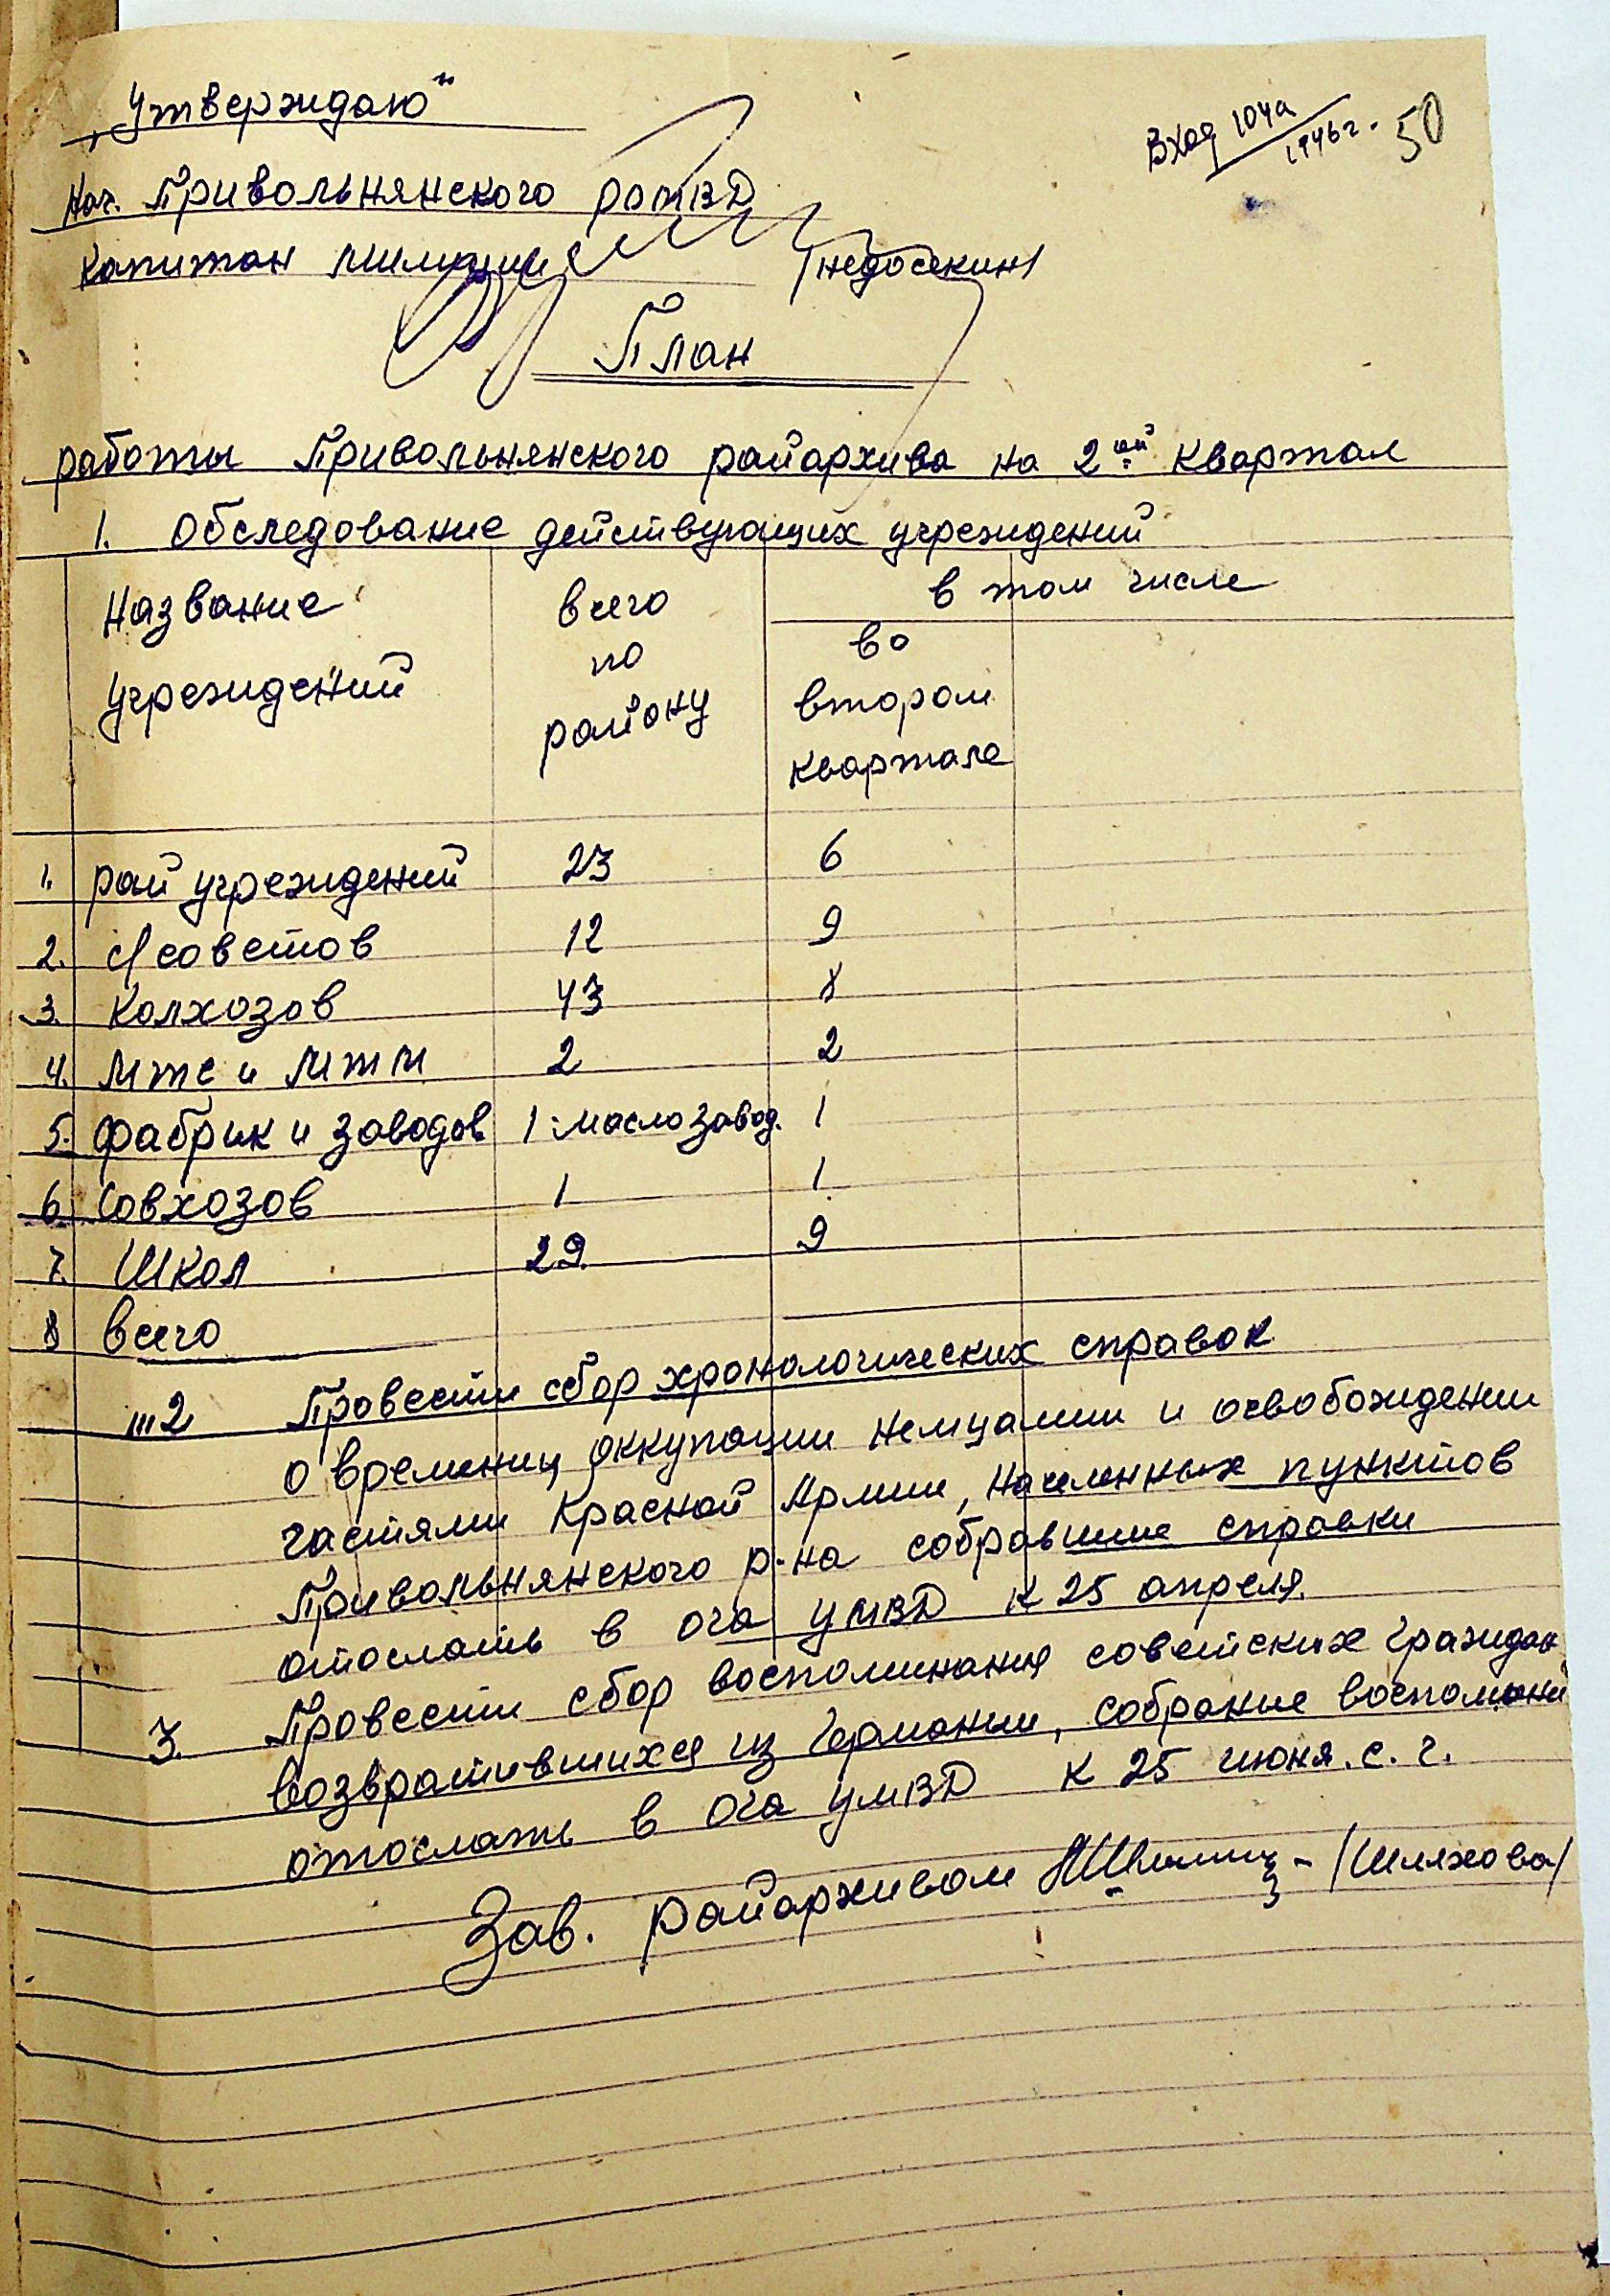 „Утверждаю"
Вход 104а
1946 г. 50
Нач. Привольнянского РОМВД
капитан милиции /Недосекин/
План
работы Привольнянского райархива на 2ой квартал
1. Обследование действующих учреждений
Название учреждений
всего по району
в том числе
во втором квартале
1. рай учреждений 23 6
2. с/советов 12 9
3. Колхозов 43 8
4. МТС и МТМ 2 2
5. фабрик и заводов 1 маслозавод. 1
6. Совхозов 1 1
7. Школ 29 9
8 всего
2 Провести сбор хронологических справок
о времени оккупации немцами и освобождении
частями Красной Армии, населенных пунктов
Привольнянского р-на собравшие справки
отослать в ОГА УМВД к 25 апреля.
3. Провести сбор воспоминания советских граждан
возвратившихся из Германии, собраные воспоминания
отослать в ОГА УМВД к 25 июня. с. г.
Зав. райархивом /Шляхова/